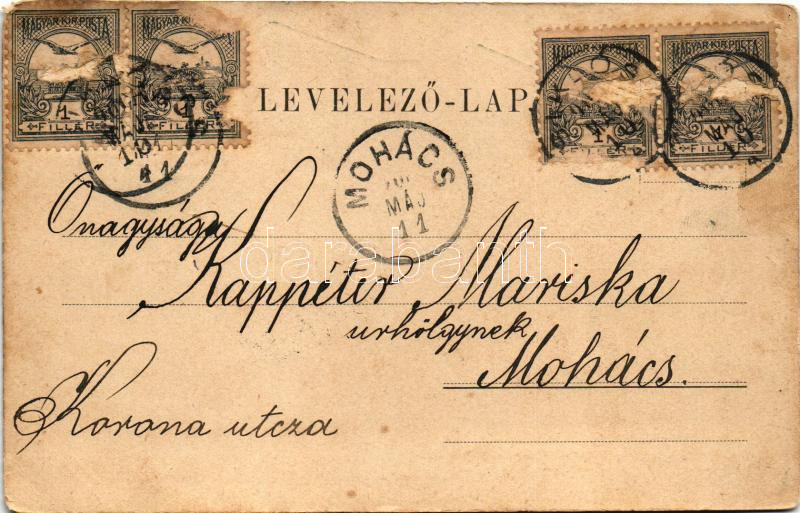 MAGYAR·KIR·POSTA MAGYAR·KIR·POSTA
1 FILLÉR
FILLÉR
MAGYAR·KIR·POSTA MAGYAR·KIR·POSTA
FILLÉR
LEVELEZŐ-LAP
MOHÁCS
MÁJ
11
Önagysága
Kappéter Mariska
urhölgynek
Mohács.
Korona utcza
darabanth